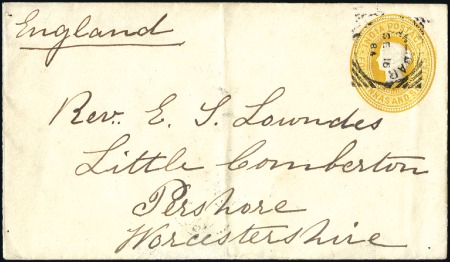 England
INDIA POSTAGE
Rev. E. S. Lowndes
Little Comberton
Pershore
Worcestershire